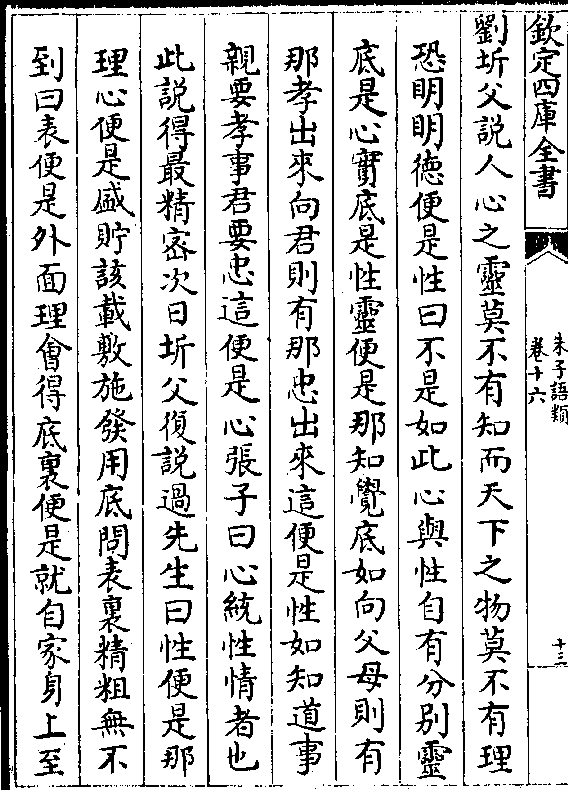 欽定四庫全書
朱子語類
卷十六
十三
劉圻父說人心之靈莫不有知而天下之物莫不有理
恐明明德便是性曰不是如此心與性自有分别靈
底是心實底是性靈便是那知覺底如向父母則有
那孝出來向君則有那忠出來這便是性如知道事
親要孝事君要忠這便是心張子曰心統性情者也
此說得最精密次日圻父復說過先生曰性便是那
理心便是盛貯該載敷施發用底問表裏精粗無不
到曰表便是外面理會得底裏便是就自家身上至